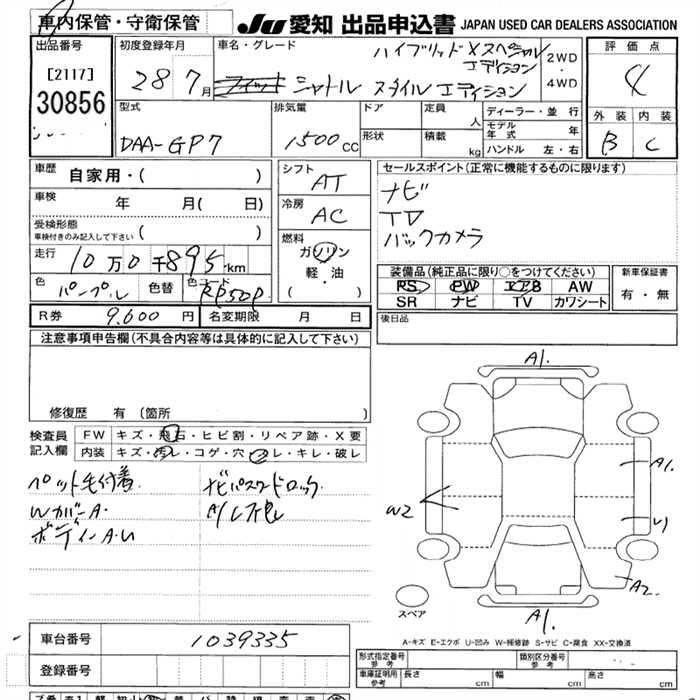 車内保管・守衛保管
JU 愛知 出品申込書 JAPAN USED CAR DEALERS ASSOCIATION
出品番号
[2117]
30856
初度登録年月
28 7月
車名・グレード
ハイブリッドXスペシャル
エディション
フィット シャトル スタイルエディション
2WD
・
4WD
評価点
4
外装 内装
B C
型式
DAA-GP7
排気量
1500cc
ドア
形状
定員
人
積載
kg
ディーラー・並行
モデル年式 年
ハンドル 左・右
車歴 自家用・( )
車検 年 月( 日)
受検形態
車検付きのみ記入して下さい ( )
走行 10万0千895km
色 パープル 色替 色コード RP50P
シフト
AT
冷房
AC
燃料
ガソリン
軽・油
( )
セールスポイント(正常に機能するものに限ります)
ナビ
TV
バックカメラ
装備品(純正品に限り○をつけてください)
PS PW エアB AW
SR ナビ TV カワシート
新車保証書
有・無
R券 9,600円 名変期限 月 日
後日品
注意事項申告欄(不具合内容等は具体的に記入して下さい)
修復歴 有(箇所 )
検査員
記入欄
FW キズ・飛石・ヒビ割・リペア跡・X要
内装 キズ・汚レ・コゲ・穴・スレ・キレ・破レ
ペット毛付着 ナビパスワードロック
WカバーA.
ボディーA・U
A1.
A1.
W2
U1
A2.
A1.
スペア
A-キズ E-エクボ U-凹み W-補修跡 S-サビ C-腐食 XX-交換済
車台番号 1039335
登録番号
形式指定番号
参考
類別区分番号
参考
車庫証明用
参考
長さ cm 幅 cm 高さ cm